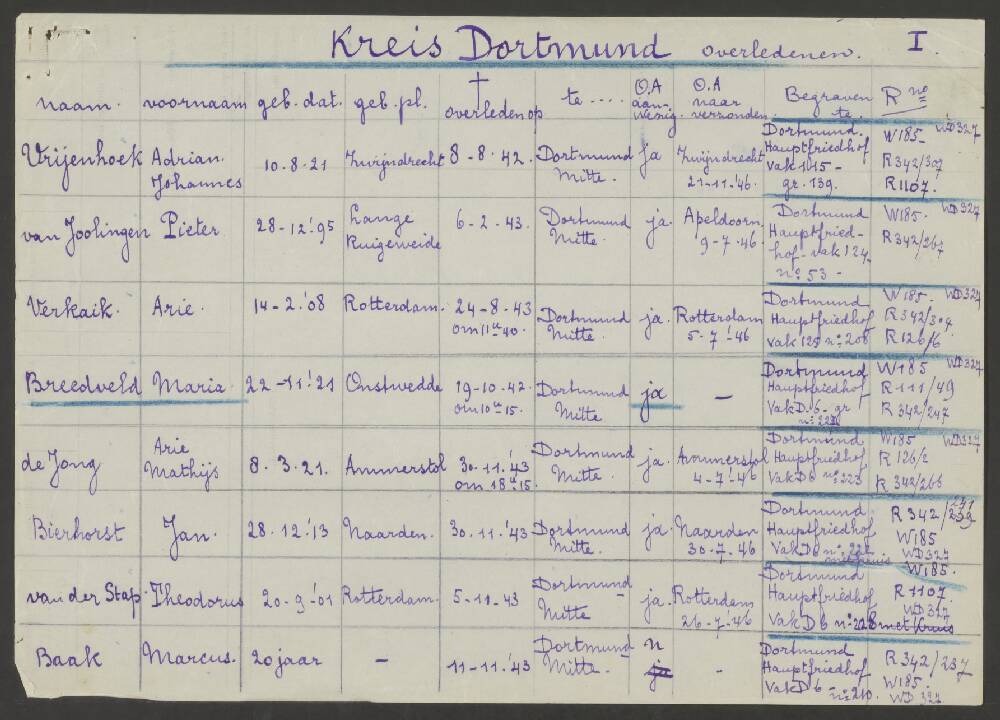 Kreis Dortmund overledenen. I.
naam. voornaam geb. dat. geb. pl. † overleden op te .... O.A aan-wezig. O.A naar verzonden. Begraven te. R no
Vrijenhoek Adrian. Johannes 10-8-21 Zwijndrecht 8-8-42. Dortmund Mitte. ja Zwijndrecht 21-11-'46.
Dortmund.
Hauptfriedhof
gr. 139.
W185- WD327
R342/307
R1107.
van Joolingen Pieter 28-12-'95 Lange Ruigeweide 6-2-43. Dortmund Mitte. ja. Apeldoorn. 9-7-46
Dortmund
Hauptfried-
hof- vak 124
no 53-
W185- WD327
R342/267
Verkaik. Arie. 14-2-'08 Rotterdam. 24-8-43 om 11u 40. Dortmund Mitte. ja. Rotterdam 5-7-'46
Dortmund
Hauptfriedhof
vak 125 no 208
W185- WD327
R342/304
R126/6
Breedveld Maria. 22-11-'21 Onstwedde 19-10-42. om 10u 15. Dortmund Mitte ja -
Dortmund
Hauptfriedhof
Vak D.6- gr
W185 WD327
R111/49
R342/247
de Jong Arie Mathijs 8.3.21. Ammerstol 30-11-'43 om 18u 15. Dortmund Mitte. ja. Ammerstol 4-7-'46
Dortmund
Hauptfriedhof
Vak D6 no 223
W185 WD327
R126/2
R342/266
Bierhorst Jan. 28.12.'13 Naarden. 30-11-'43 Dortmund Mitte. ja. Naarden 30-7-46
Dortmund
Hauptfriedhof
Vak D6 no 221
R342/239 241
W185
WD327
van der Stap. Theodorus 20-9-'01 Rotterdam. 5-11-43 Dortmund Mitte ja. Rotterdam 26-7-'46
Dortmund
Hauptfriedhof
Vak D6 no 228 met Kruis
W185.
R1107.
WD327
Baak Marcus. 20 jaar - 11-11-'43 Dortmund Mitte. n -
Dortmund
Hauptfriedhof
Vak D6-
no 210.
R342/237
W185.
WD327.